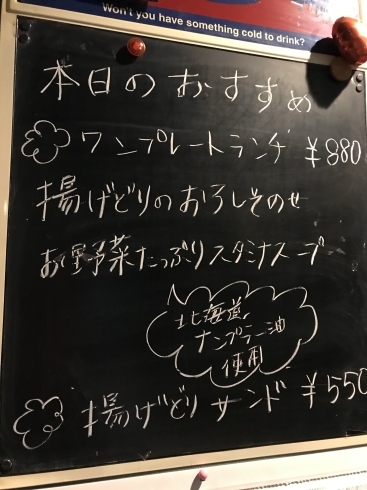 Won't you have something cold to drink?
本日のおすすめ
ワンプレートランチ ¥880
揚げどりのおろしそのせ
お野菜たっぷりスタミナスープ
北海道
ナンプラー油
使用
揚げどりサンド ¥550